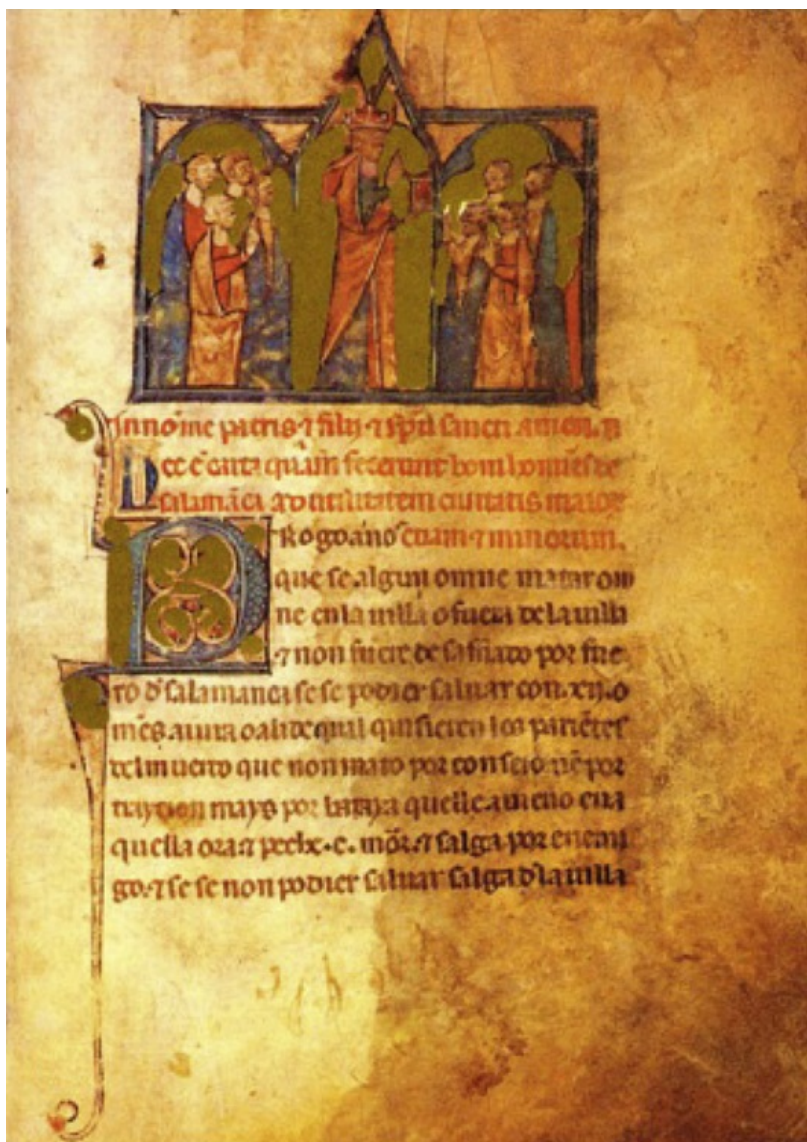 In nomine patris ⁊ filij ⁊ sp̄s sancti amen. H
ec ē carta quam fecerunt boni homines de
salamāca ad utilitatem ciuitatis maior
etiam ⁊ minorum.
que se algun omne matar om
ne en la uilla o fuera de la uilla
⁊ non fuere desafiado por fue
ro d̄ salamanca se se podier saluar con .xij. o
mēs a iura o a lide qual quisieren los pariētes
del muerto que non mato por conseio nē por
traycion mays por baraya quelle aueno en a
quella ora ⁊ peche .c. mōr. ⁊ salga por enemi
go. ⁊ se se non podier saluar salga d̄ la uilla